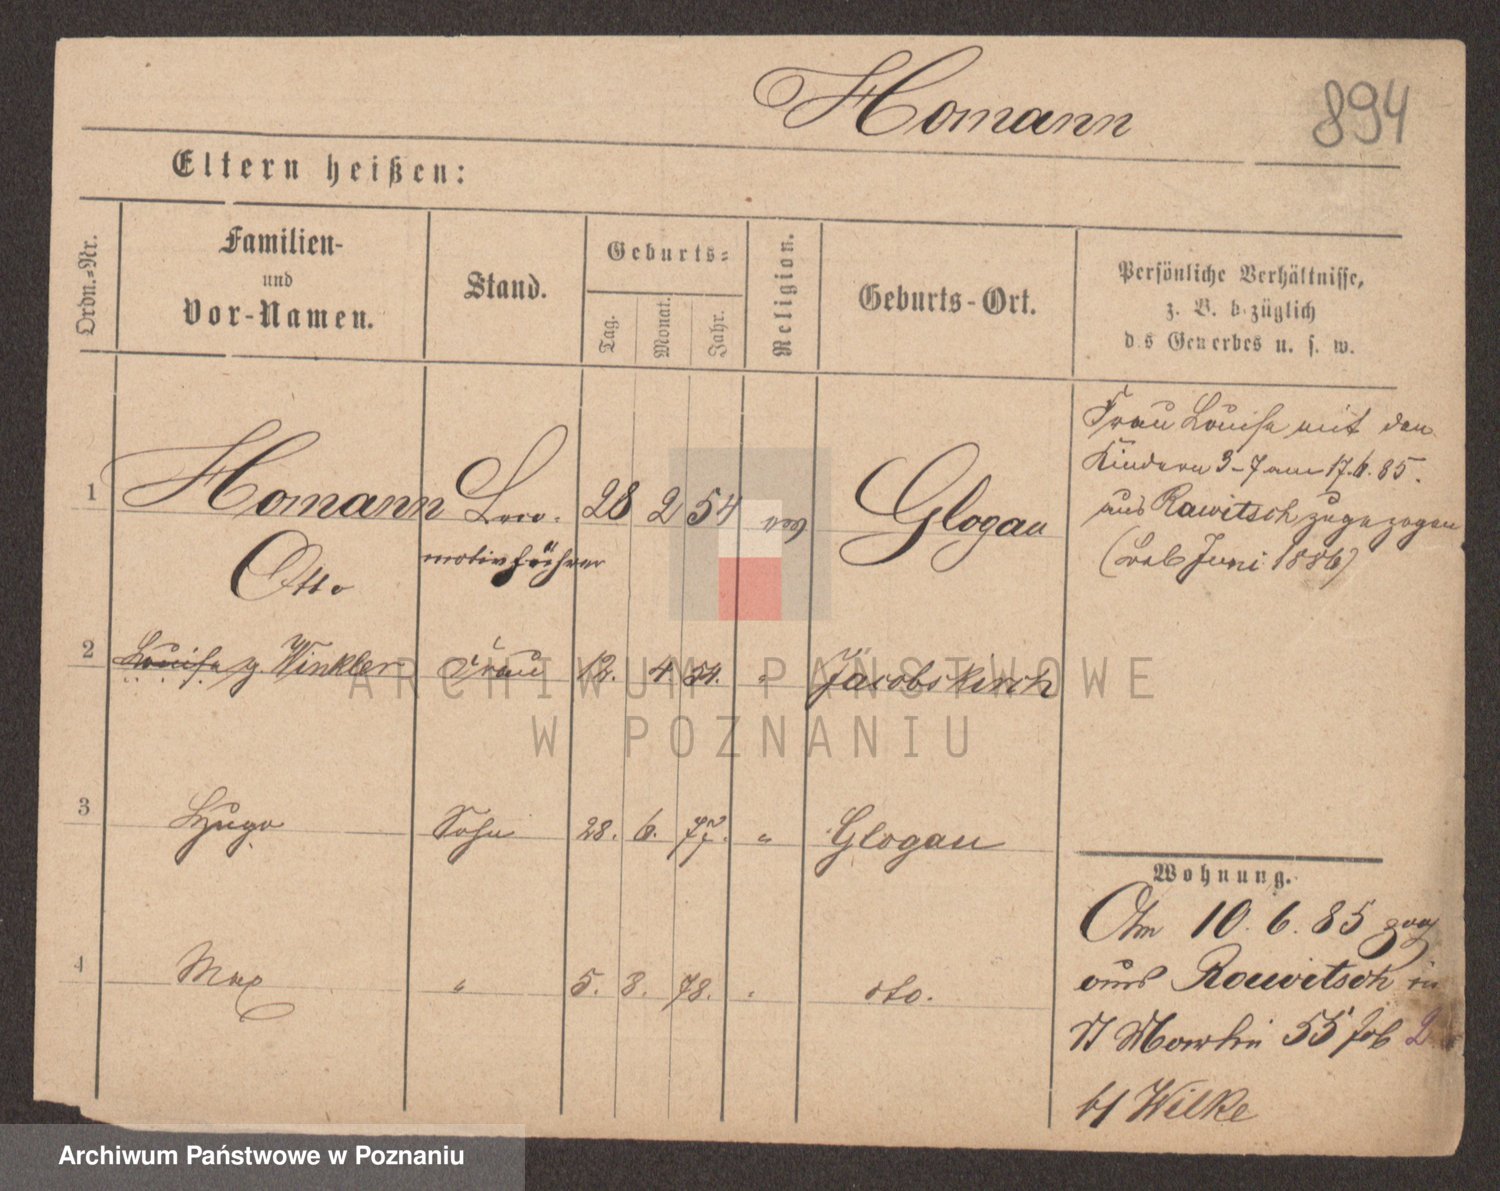 Homann
894
Eltern heißen:
Ordn.-Nr.
Familien-
und
Vor-Namen.
Stand.
Geburts-
Tag.
Monat.
Jahr.
Religion.
Geburts-Ort.
Persönliche Verhältnisse,
z. B. bezüglich
des Gewerbes u. s. w.
1 Homann Loco- 28 2 54 evg Glogau
Otto motivführer
2 Louise g. Winkler Frau 12. 4 54. " Jacobskirch
3 Hugo Sohn 28. 6. 77. " Glogau
4 Max " 5. 8. 78. " dto.
Frau Louise mit den
Kindern 3-7 am 17.6.85.
aus Rawitsch zugezogen
(Juni 1886)
Wohnung.
Am 10. 6. 85 zog
aus Rawitsch in
St Martin 55
b/ Wilke
ARCHIWUM PAŃSTWOWE
W POZNANIU
Archiwum Państwowe w Poznaniu